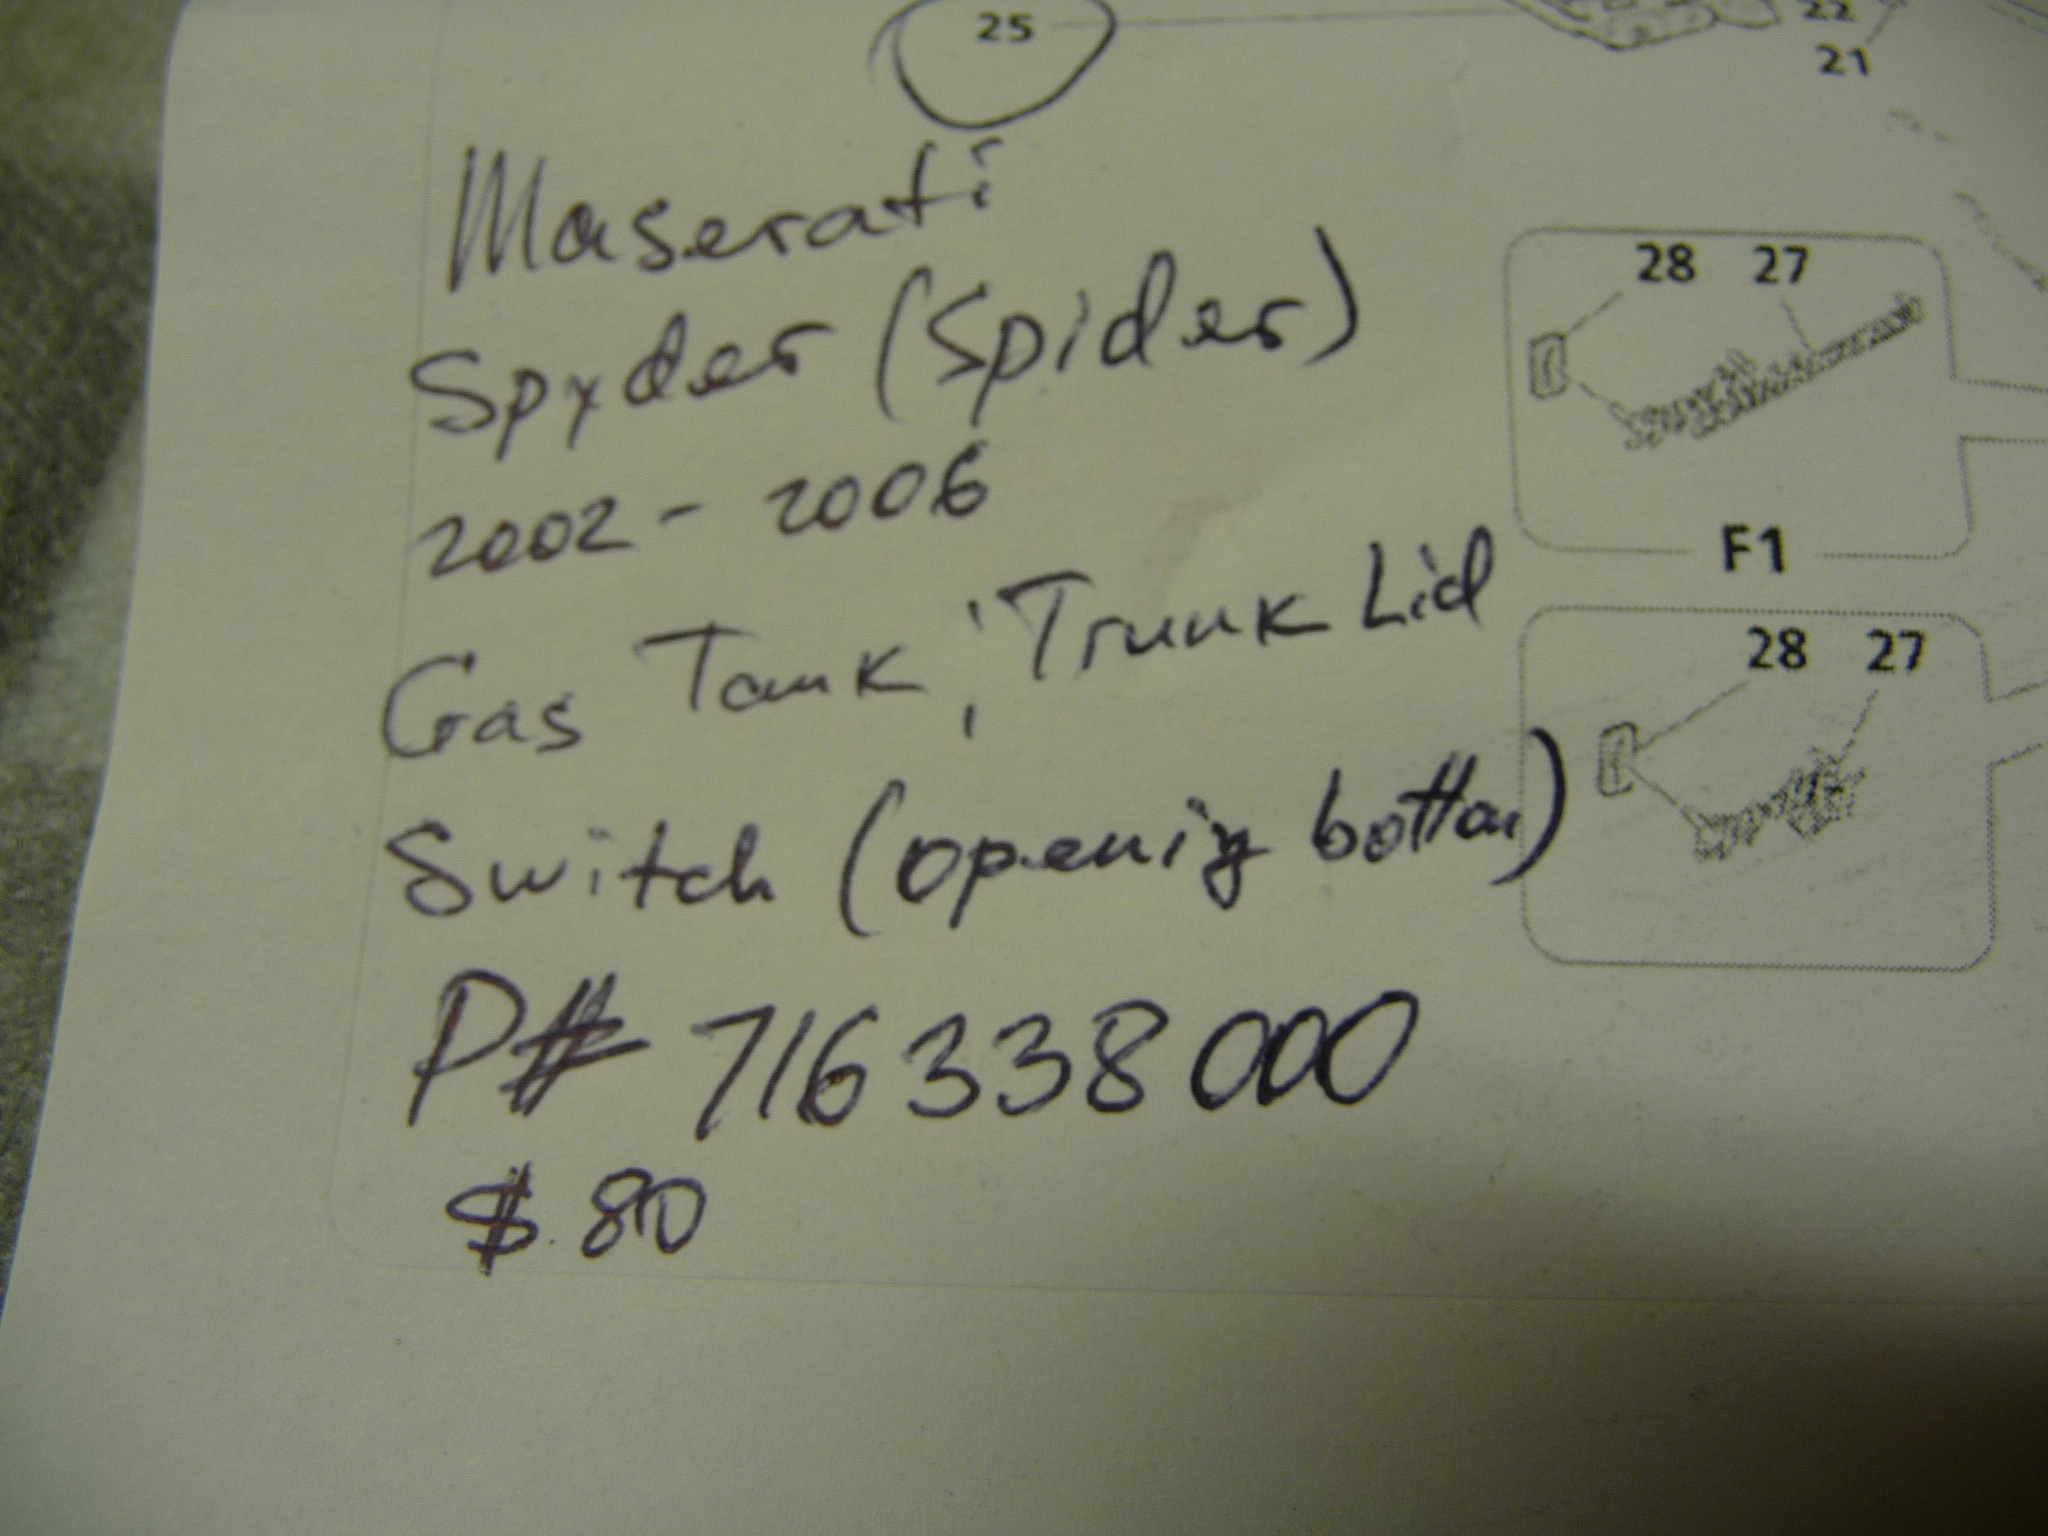 25
22
21
Maserati
Spyder (Spider)
28 27
2002 - 2006
F1
Gas Tank, Trunk Lid
28 27
Switch (opening botton)
P# 716338000
$.80